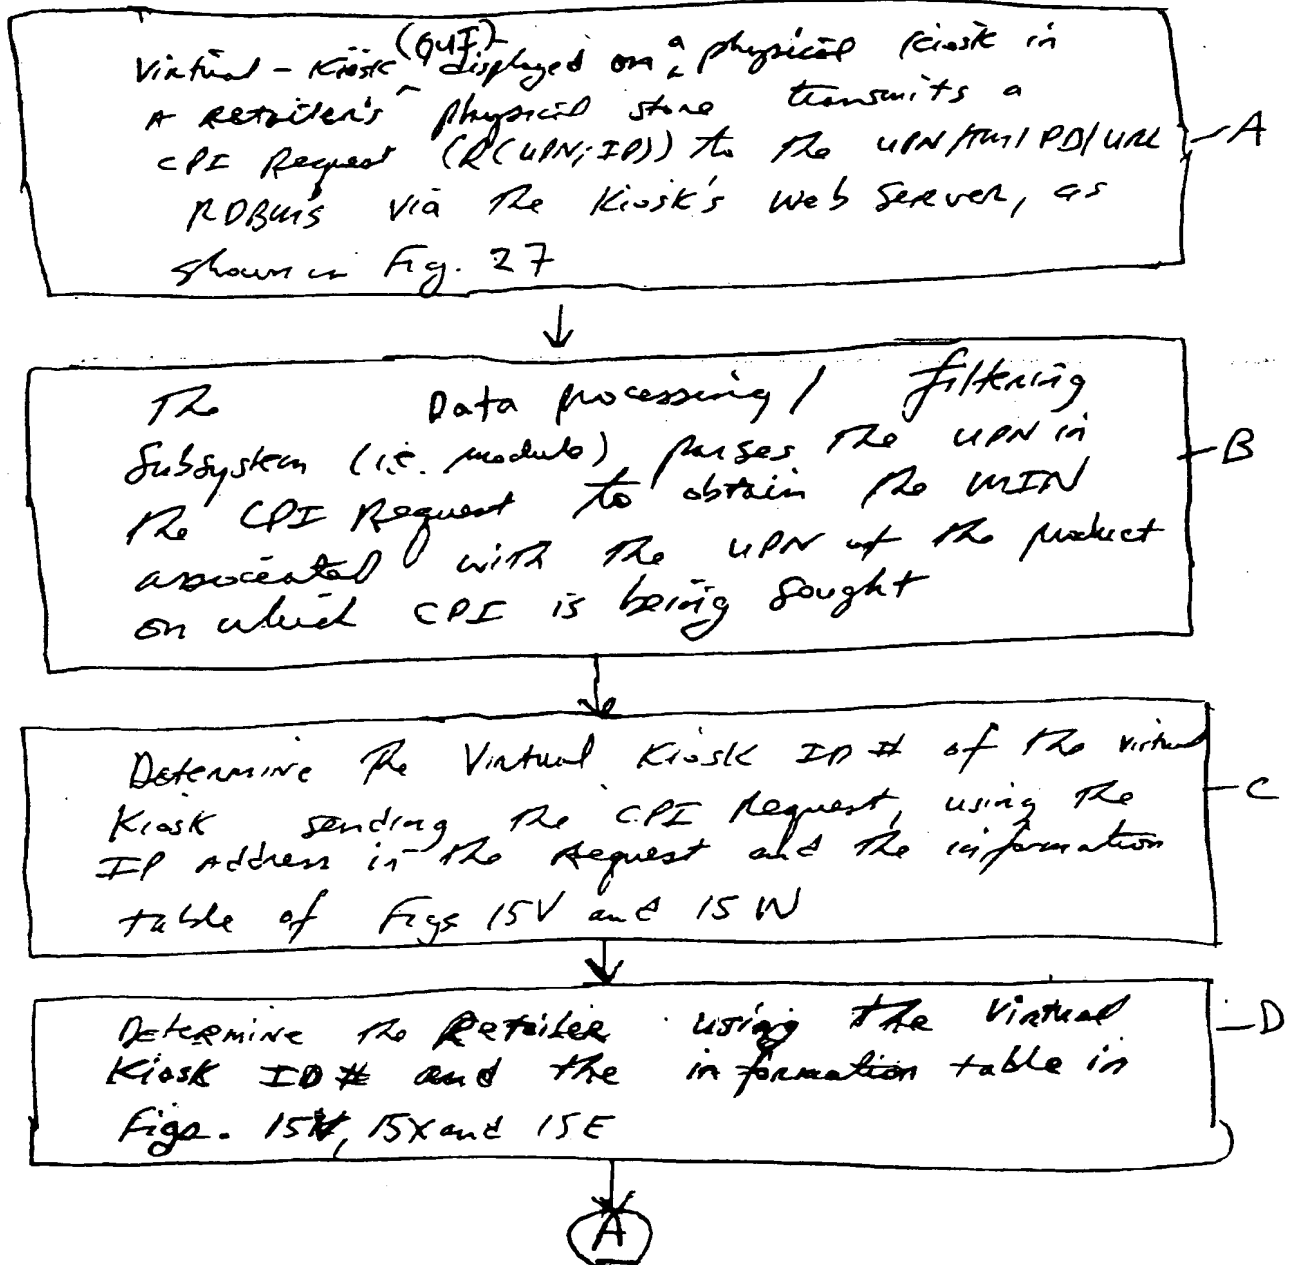 (GUI)
Virtual-Kiosk displayed on a physical Kiosk in
A Retailer's physical store transmits a
CPI Request (R(UPN; IP)) to the UPN/TM/PD/URL
RDBMS via the Kiosk's Web Server, as
shown in Fig. 27
A
The Data processing/ filtering
Subsystem (i.e. module) parses the UPN in
the CPI Request to obtain the MIN
associated with the UPN of the product
on which CPI is being sought
B
Determine the Virtual Kiosk ID # of the virtual
Kiosk sending the CPI Request, using the
IP Address in the Request and the information
table of Figs 15V and 15W
C
Determine the Retailer using the Virtual
Kiosk ID # and the information table in
Figs. 15X and 15E
D
A